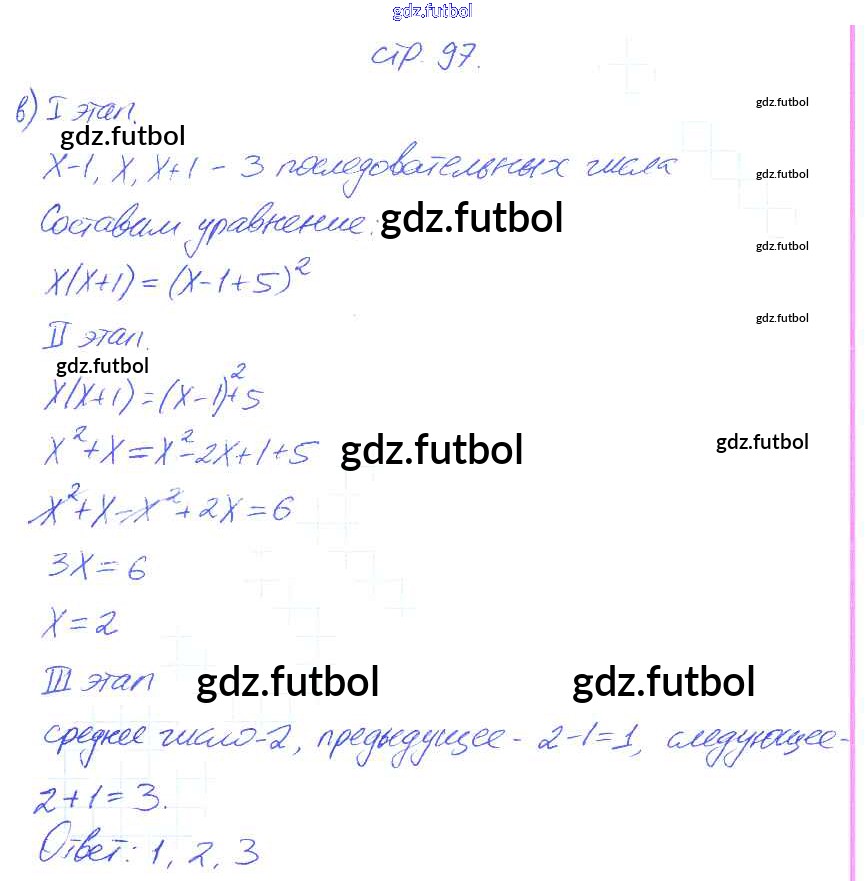 gdz.futbol
стр. 97.
в) I этап.
gdz.futbol
gdz.futbol
x-1, x, x+1 - 3 последовательных числа
gdz.futbol
Составим уравнение:
gdz.futbol
gdz.futbol
x(x+1) = (x-1+5)²
gdz.futbol
II этап.
gdz.futbol
x(x+1) = (x-1)²+5
x²+x=x²-2x+1+5
gdz.futbol
gdz.futbol
x²+x-x²+2x=6
3x=6
x=2
III этап
gdz.futbol
gdz.futbol
среднее число-2, предыдущее- 2-1=1, следующее-
2+1=3.
Ответ: 1, 2, 3